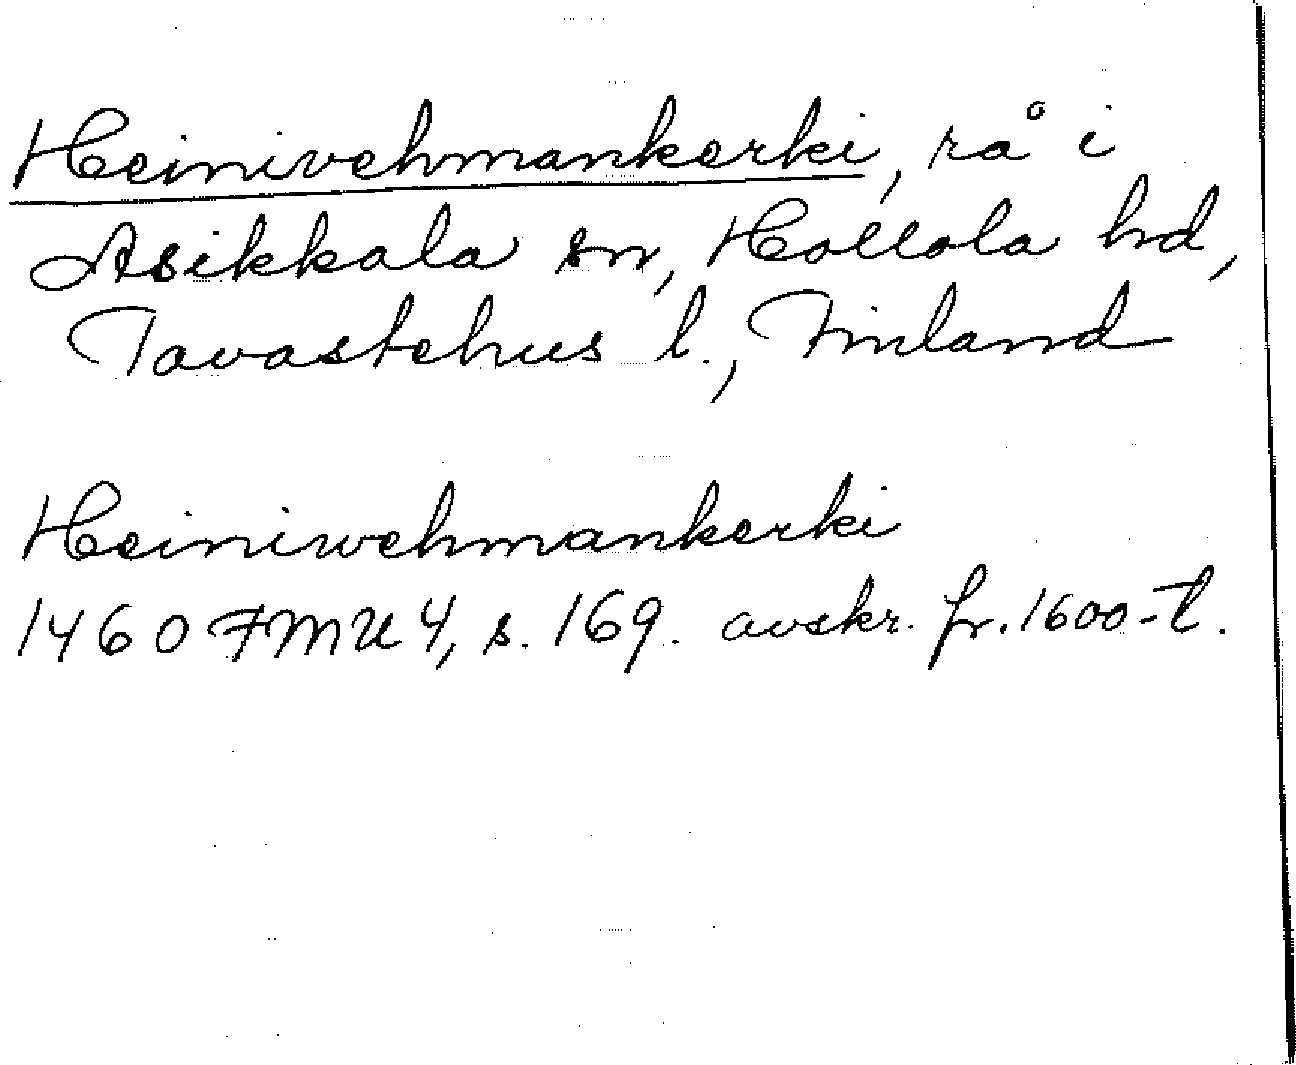 Heinivehmankerki, rå i
Asikkala sn, Hollola hd,
Tavastehus l., Finland
Heiniwehmankerki
1460 FMU 4, s. 169. avskr. fr. 1600-t.